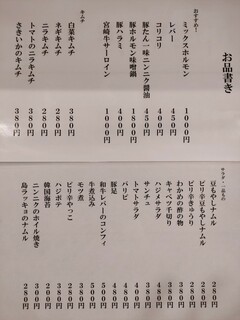 お品書き
おすすめ!
ミックスホルモン 1000円
レバー 450円
コリコリ 400円
豚たん一味ニンニク醤油 450円
豚ホルモン味噌鍋 1800円
豚ハラミ 400円
宮崎牛サーロイン 1000円
キムチ
白菜キムチ 380円
ネギキムチ 280円
ニラキムチ 280円
トマトのニラキムチ 380円
さきいかのキムチ 380円
豆もやしナムル 280円
ピリ辛豆もやしナムル 280円
ピリ辛きゅうり 280円
わかめの酢の物 380円
キャベツ千切り 280円
ハジメサラダ 380円
サンチュ 380円
トマトサラダ
パリピ
豚足
和牛レバーのコンフィ 500円
牛煮込み 500円
モツ煮
ピリ辛やっこ
ハジポテ 380円
韓国海苔
ニンニクのホイル焼き 380円
島ラッキョのナムル 280円